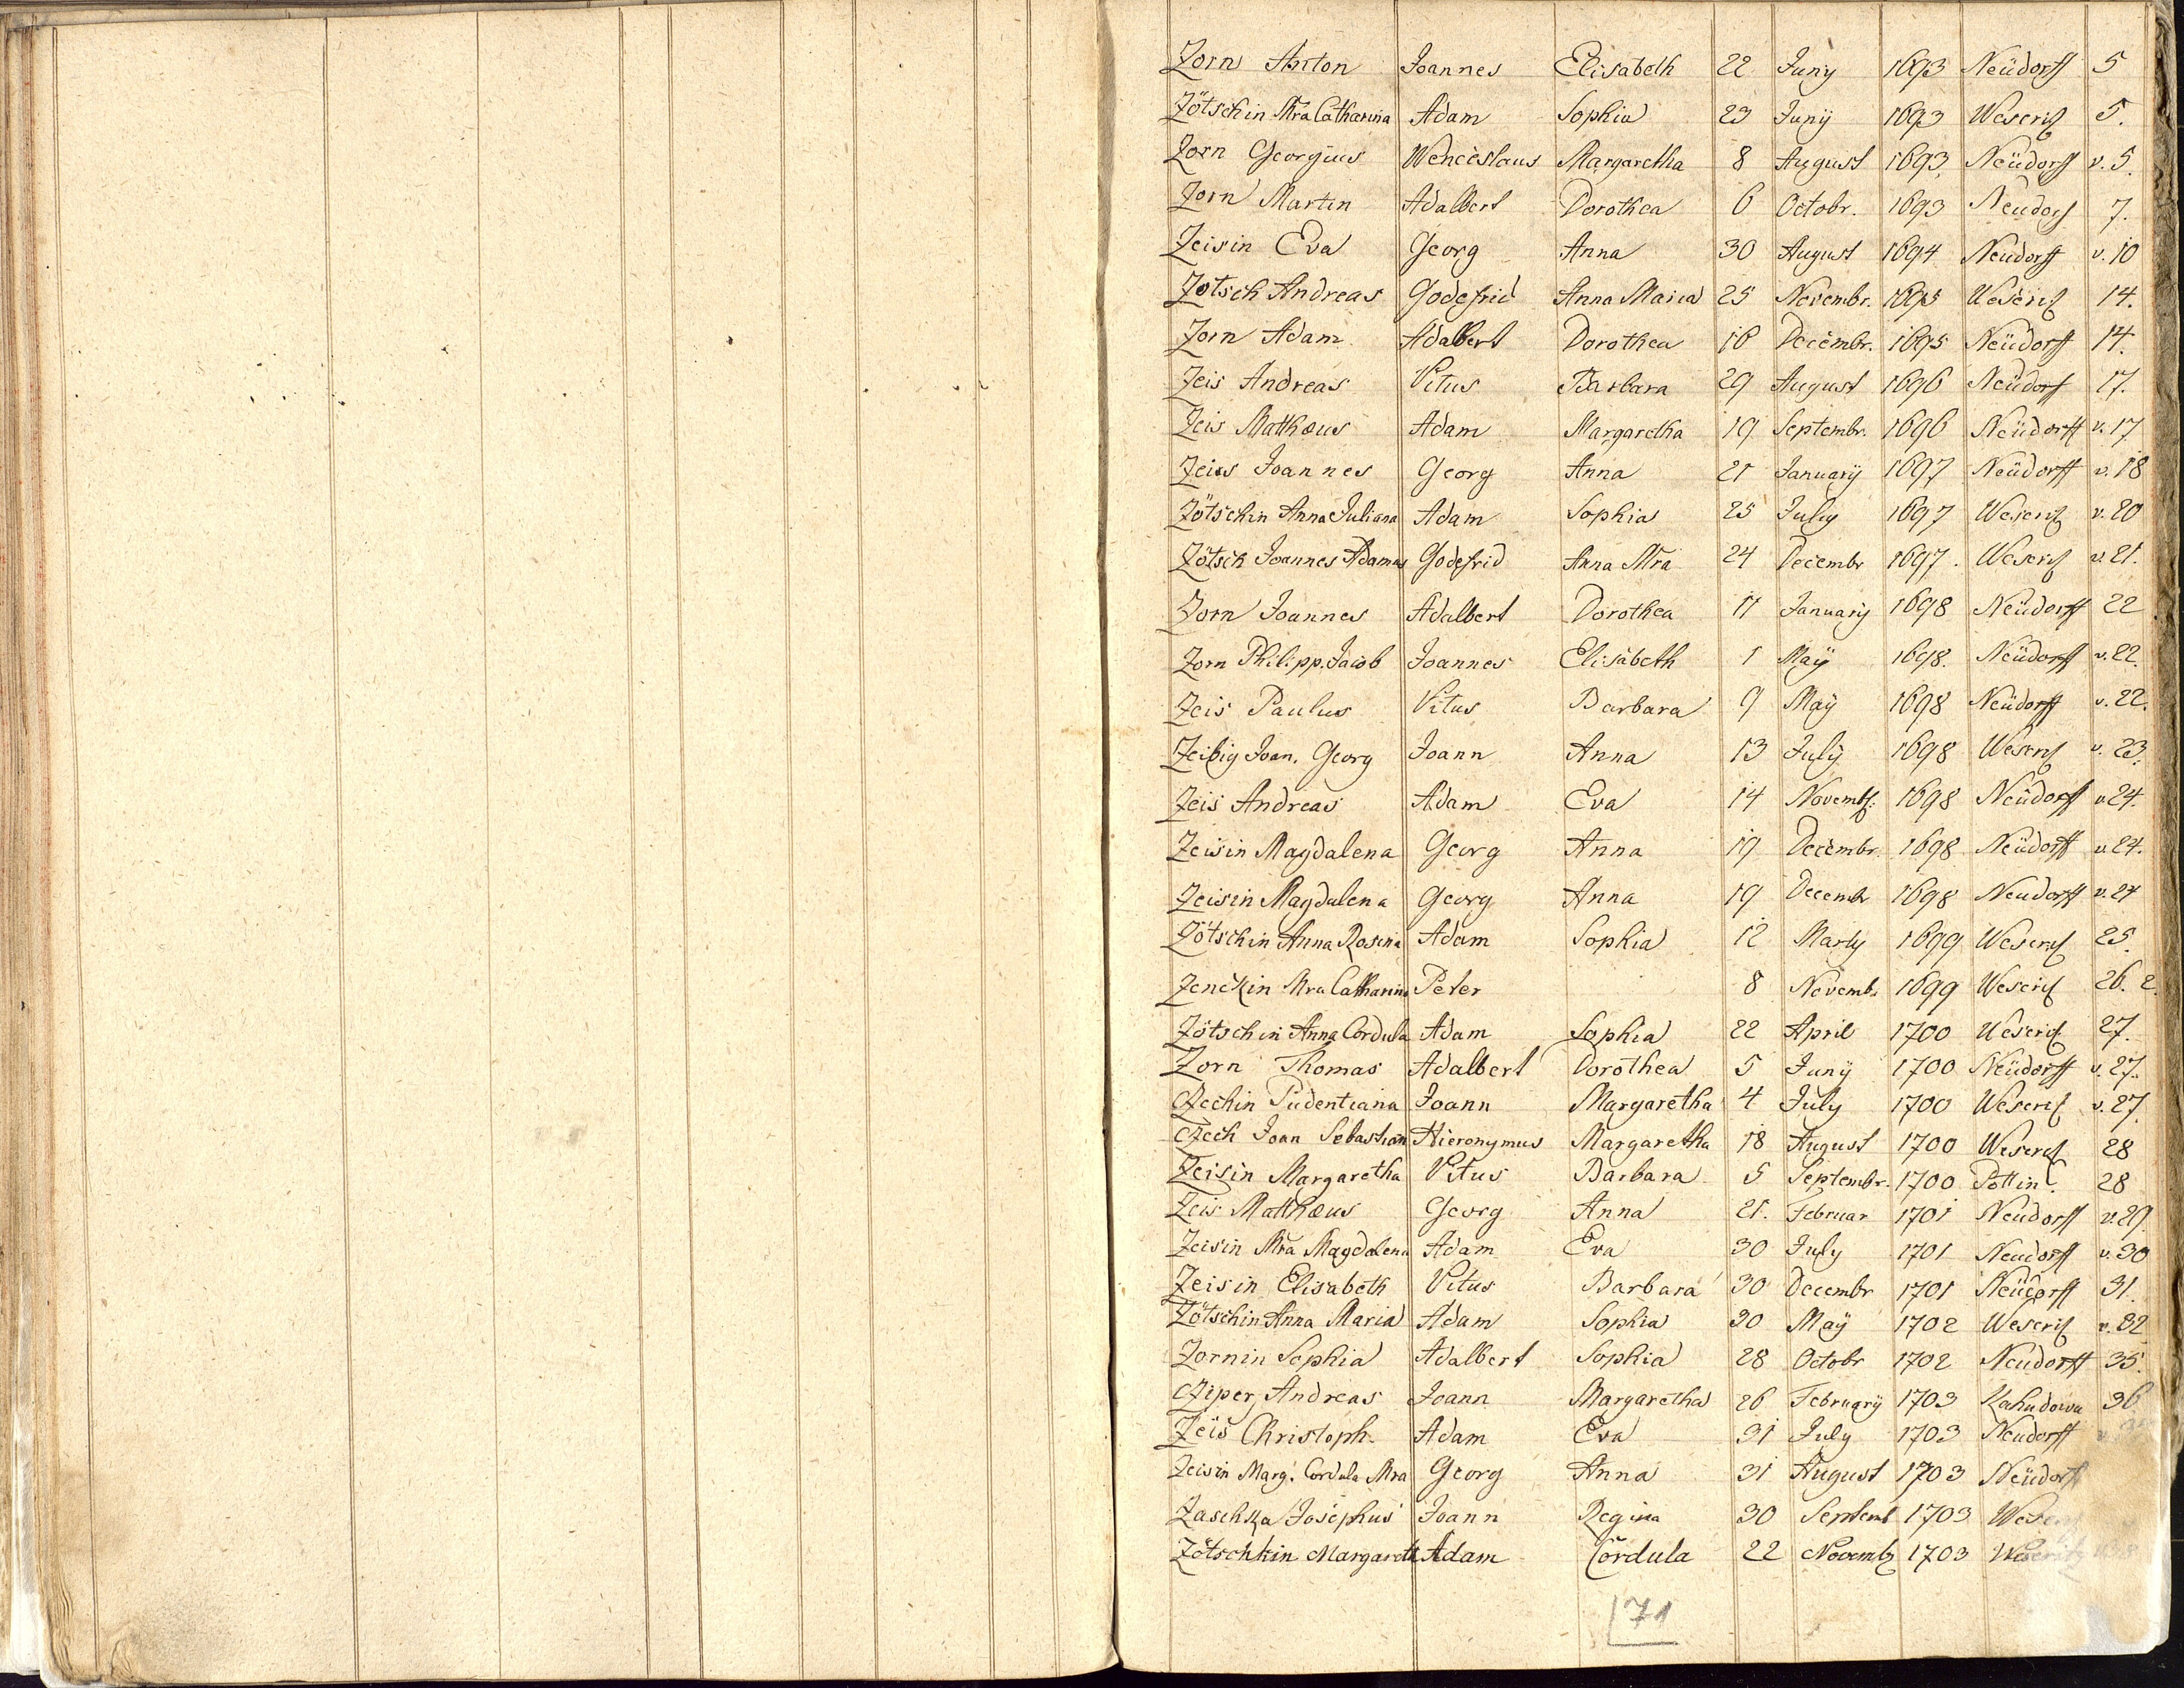 Zorn Anton Joannes Elisabeth 22 Juny 1693 Neüdorff 5
Zötschin Mra Catharina Adam Sophia 23 Junÿ 1693 Weseritz 5.
Zorn Georgius Wenceslaus Margaretha 8 August 1693 Neüdorff v. 5.
Zorn Martin Adalbert Dorothea 6 Octobr. 1693 Neudorf 7.
Zeisin Eva Georg Anna 30 August 1694 Neudorff v. 10
Zötsch Andreas Godefrid Anna Maria 25 Novembr. 1695 Weseritz 14.
Zorn Adam Adalbert Dorothea 16 Decembr. 1695 Neüdorff 14.
Zeis Andreas Vitus Barbara 29 August 1696 Neüdorf 17.
Zeis Mathæus Adam Margaretha 19 Septembr. 1696 Neüdorff v. 17
Zeiss Joannes Georg Anna 21 Januarÿ 1697 Neüdorff v. 18
Zötschin Anna Juliana Adam Sophia 25 July 1697 Weseritz v. 20
Zötsch Joannes Adamus Godefrid Anna Mra 24 Decembr 1697. Weseritz v. 21.
Zorn Joannes Adalbert Dorothea 11 Januarÿ 1698 Neüdorff 22
Zorn Philipp. Jacob Joannes Elisabeth 1 Maÿ 1698. Neüdorff v. 22.
Zeis Paulus Vitus Barbara 9 Maÿ 1698 Neüdorff v. 22.
Zeibig Joan. Georg Joann Anna 13 Julÿ 1698 Weseritz v. 23.
Zeis Andreas Adam Eva 14 Novemb. 1698 Neüdorff v 24.
Zeisin Magdalena Georg Anna 19 Decembr. 1698 Neüdorff v 24.
Zeisin Magdalena Georg Anna 19 Decembr 1698 Neudorff v. 24
Zötschin Anna Rosina Adam Sophia 12 Marty 1699 Weseritz 25.
Zenckin Mra Catharina Peter 8 Novemb. 1699 Weseritz 26. 2.
Zötschin Anna Cordula Adam Sophia 22 April 1700 Weseritz 27.
Zorn Thomas Adalbert Dorothea 5 Junÿ 1700 Neüdorff v. 27.
Czechin Pudentiana Joann Margaretha 4 July 1700 Weseritz v. 27.
Czech Joan Sebastian Hieronymus Margaretha 18 August 1700 Weseritz 28
Zeisin Margaretha Vitus Barbara 5 Septembr. 1700 Pottin 28
Zeis Mathæus Georg Anna 21. Februar 1701 Neudorff v. 29.
Zeisin Mra Magdalena Adam Eva 30 July 1701 Neudorff v. 30
Zeisin Elisabeth Vitus Barbara 30 Decembr 1701 Neüdorff 31.
Zötschin Anna Maria Adam Sophia 30 Maÿ 1702 Weseritz v. 32
Zornin Sophia Adalbert Sophia 28 Octobr 1702 Neudorff 35.
Cziper, Andreas Joann Margaretha 26 Februarÿ 1703 Kahudowa 36
Zeis Christoph. Adam Eva 31 July 1703 Neudorff
Zeisin Marg. Cordula Mra Georg Anna 31 August 1703 Neüdorff
Zaschka Josephus Joann Regina 30 Septemb 1703
Zötschkin Margareth Adam Cordula 22 Novemb 1703 Weseritz
171